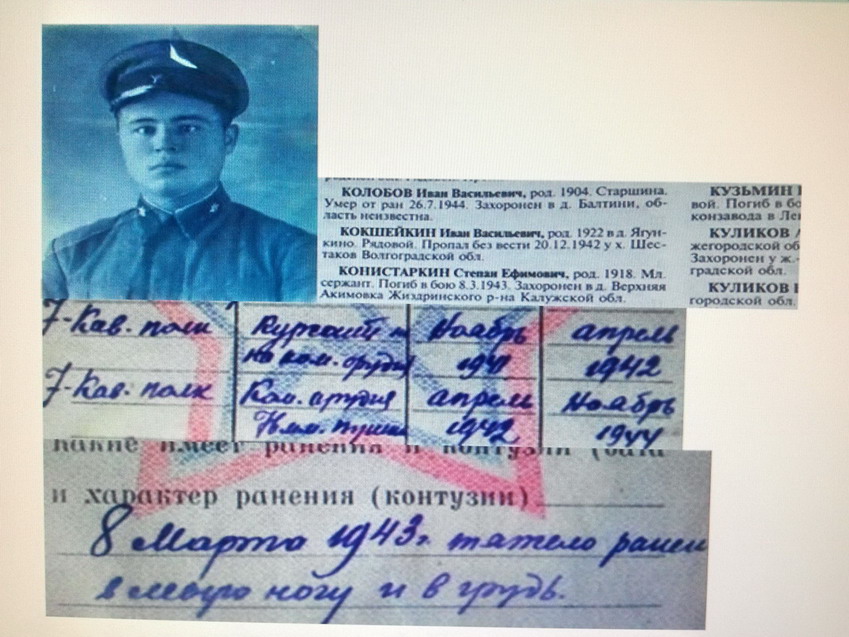 КОЛОБОВ Иван Васильевич, род. 1904. Старшина.
Умер от ран 26.7.1944. Захоронен в д. Балтини, об-
ласть неизвестна.
КОКШЕЙКИН Иван Васильевич, род. 1922 в д. Ягун-
кино. Рядовой. Пропал без вести 20.12.1942 у х. Шес-
таков Волгоградской обл.
КОНИСТАРКИН Степан Ефимович, род. 1918. Мл.
сержант. Погиб в бою 8.3.1943. Захоронен в д. Верхняя
Акимовка Жиздринского р-на Калужской обл.
КУЗЬМИН
вой. Погиб в бо
конзавода в Ле
КУЛИКОВ
жегородской об
Захоронен у ж.-
градской обл.
КУЛИКОВ
городской обл.
7-Кав. полк Курсант Ноябрь апрель
на ком. орудия 1941 1942
7-Кав. полк Ком. орудия апрель Ноябрь
мм. пушки 1942 1944
какие имеет ранения и контузии (дата
и характер ранения (контузии)
8 Марта 1943г. тяжело ранен
в левую ногу и в грудь.